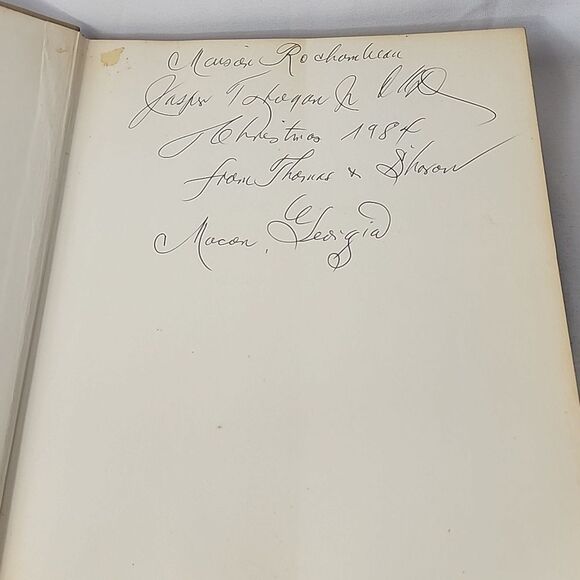 Maison Rochambeau
Jasper T. Hogan Jr
Christmas 1984
from Thomas & Sharon
Macon, Georgia